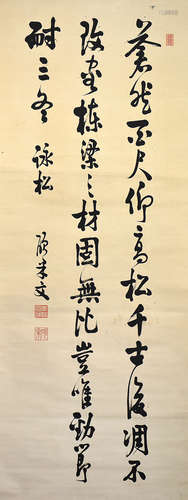 蒼然百尺仰高松千古後凋不
改容棟梁之材固無比豈唯勁節
耐三冬 詠松